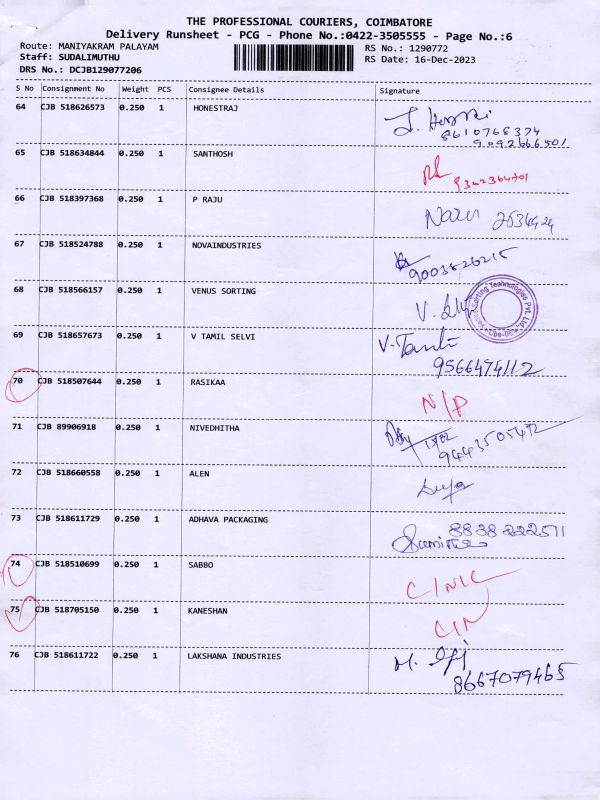 THE PROFESSIONAL COURIERS, COIMBATORE
Delivery Runsheet - PCG - Phone No.:0422-3505555 - Page No.:6
Route: MANIYAKRAM PALAYAM RS No.: 1290772
Staff: SUDALIMUTHU RS Date: 16-Dec-2023
DRS No.: DCJB129077206
S No Consignment No Weight PCS Consignee Details Signature
64 CJB 518626573 0.250 1 HONESTRAJ
8610765374
9092666501
65 CJB 518634844 0.250 1 SANTHOSH
66 CJB 518397368 0.250 1 P RAJU
67 CJB 518524788 0.250 1 NOVAINDUSTRIES
9003526215
68 CJB 518566157 0.250 1 VENUS SORTING
Sorting Technologies Pvt. Ltd.
69 CJB 518657673 0.250 1 V TAMIL SELVI
9566474112
70 CJB 518507644 0.250 1 RASIKAA N/P
71 CJB 89906918 0.250 1 NIVEDHITHA
9443505472
72 CJB 518660558 0.250 1 ALEN
73 CJB 518611729 0.250 1 ADHAVA PACKAGING 8838222511
74 CJB 518510699 0.250 1 SABBO
75 CJB 518705150 0.250 1 KANESHAN
76 CJB 518611722 0.250 1 LAKSHANA INDUSTRIES
8667079465